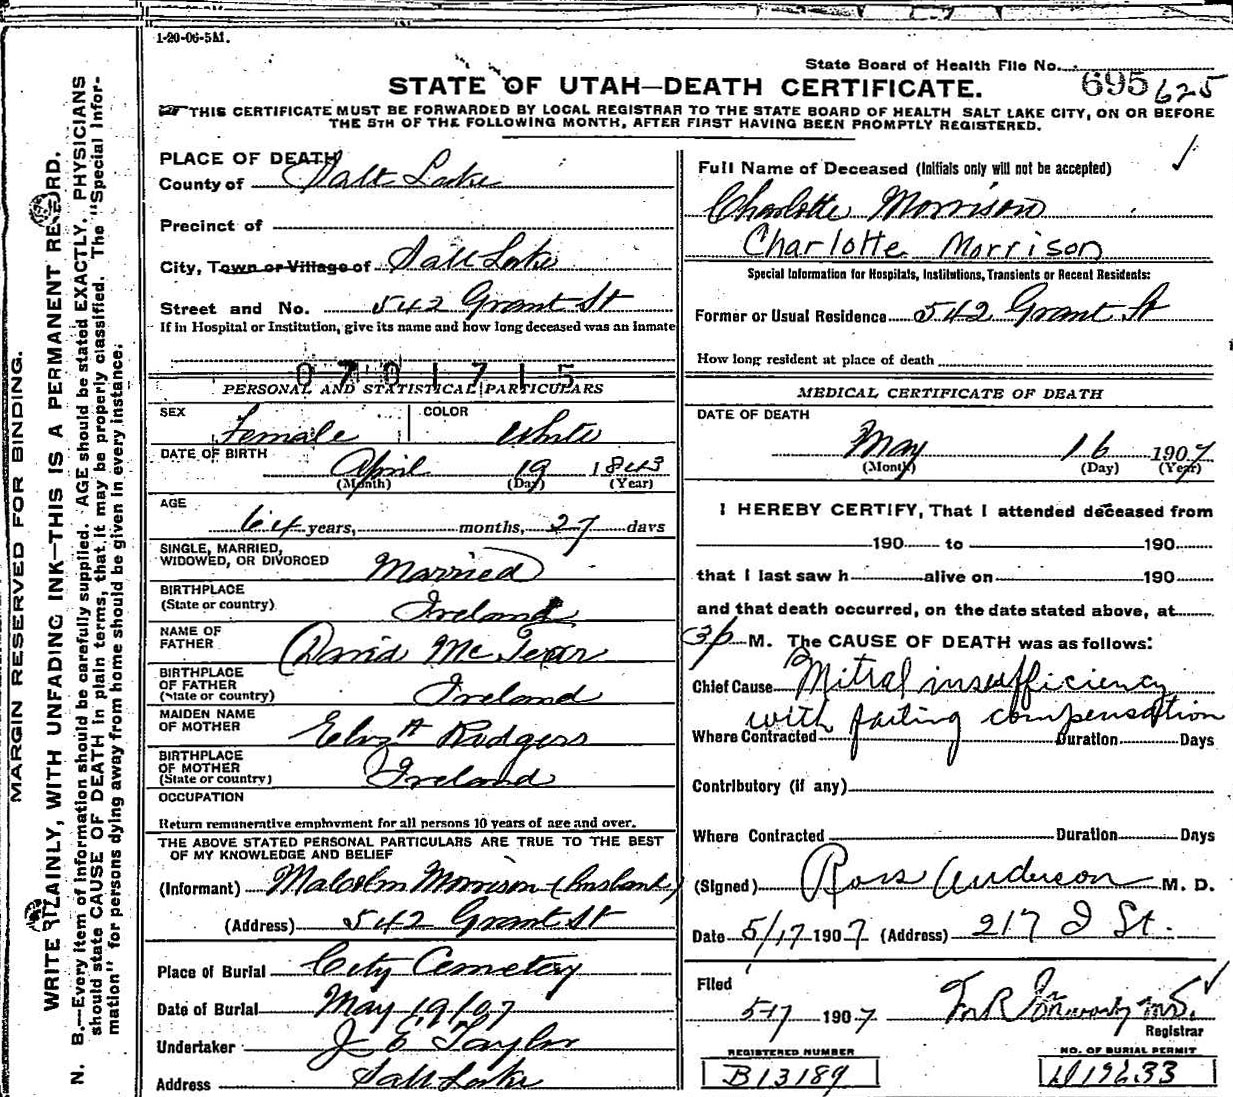 1-20-06-5M.
State Board of Health File No. 695 625
STATE OF UTAH—DEATH CERTIFICATE.
THIS CERTIFICATE MUST BE FORWARDED BY LOCAL REGISTRAR TO THE STATE BOARD OF HEALTH SALT LAKE CITY, ON OR BEFORE
THE 5TH OF THE FOLLOWING MONTH, AFTER FIRST HAVING BEEN PROMPTLY REGISTERED.
MARGIN RESERVED FOR BINDING.
WRITE PLAINLY, WITH UNFADING INK—THIS IS A PERMANENT RECORD.
N. B.—Every item of information should be carefully supplied. AGE should be stated EXACTLY. PHYSICIANS
should state CAUSE OF DEATH in plain terms, that it may be properly classified. The "Special Infor-
mation" for persons dying away from home should be given in every instance.
PLACE OF DEATH
County of Salt Lake
Precinct of
City, Town or Village of Salt Lake
Street and No. 542 Grant St
If in Hospital or Institution, give its name and how long deceased was an inmate
0701715
PERSONAL AND STATISTICAL PARTICULARS
SEX COLOR
Female White
DATE OF BIRTH
April 19 1843
(Month) (Day) (Year)
AGE
64 years, months, 27 days
SINGLE, MARRIED,
WIDOWED, OR DIVORCED Married
BIRTHPLACE
(State or country) Ireland
NAME OF
FATHER David Mc
BIRTHPLACE
OF FATHER
(State or country) Ireland
MAIDEN NAME
OF MOTHER Elizth Rodgers
BIRTHPLACE
OF MOTHER
(State or country) Ireland
OCCUPATION
Return remunerative employment for all persons 10 years of age and over.
THE ABOVE STATED PERSONAL PARTICULARS ARE TRUE TO THE BEST
OF MY KNOWLEDGE AND BELIEF
(Informant) Malcolm Morrison (husband)
(Address) 542 Grant St
Place of Burial City Cemetery
Date of Burial May 19/07
Undertaker J E Taylor
Address Salt Lake
Full Name of Deceased (Initials only will not be accepted)
Charlotte Morrison
Charlotte Morrison
Special Information for Hospitals, Institutions, Transients or Recent Residents:
Former or Usual Residence 542 Grant St
How long resident at place of death
MEDICAL CERTIFICATE OF DEATH
DATE OF DEATH
May 16 1907
(Month) (Day) (Year)
I HEREBY CERTIFY, That I attended deceased from
190 to 190
that I last saw h alive on 190
and that death occurred, on the date stated above, at
3p M. The CAUSE OF DEATH was as follows:
Chief Cause Mitral insufficiency
with failing compensation
Where Contracted Duration Days
Contributory (if any)
Where Contracted Duration Days
(Signed) Ross Anderson M. D.
Date 5/17 1907 (Address) 217 J St.
Filed
5-17 1907
Registrar
REGISTERED NUMBER
B13189
NO. OF BURIAL PERMIT
D19633